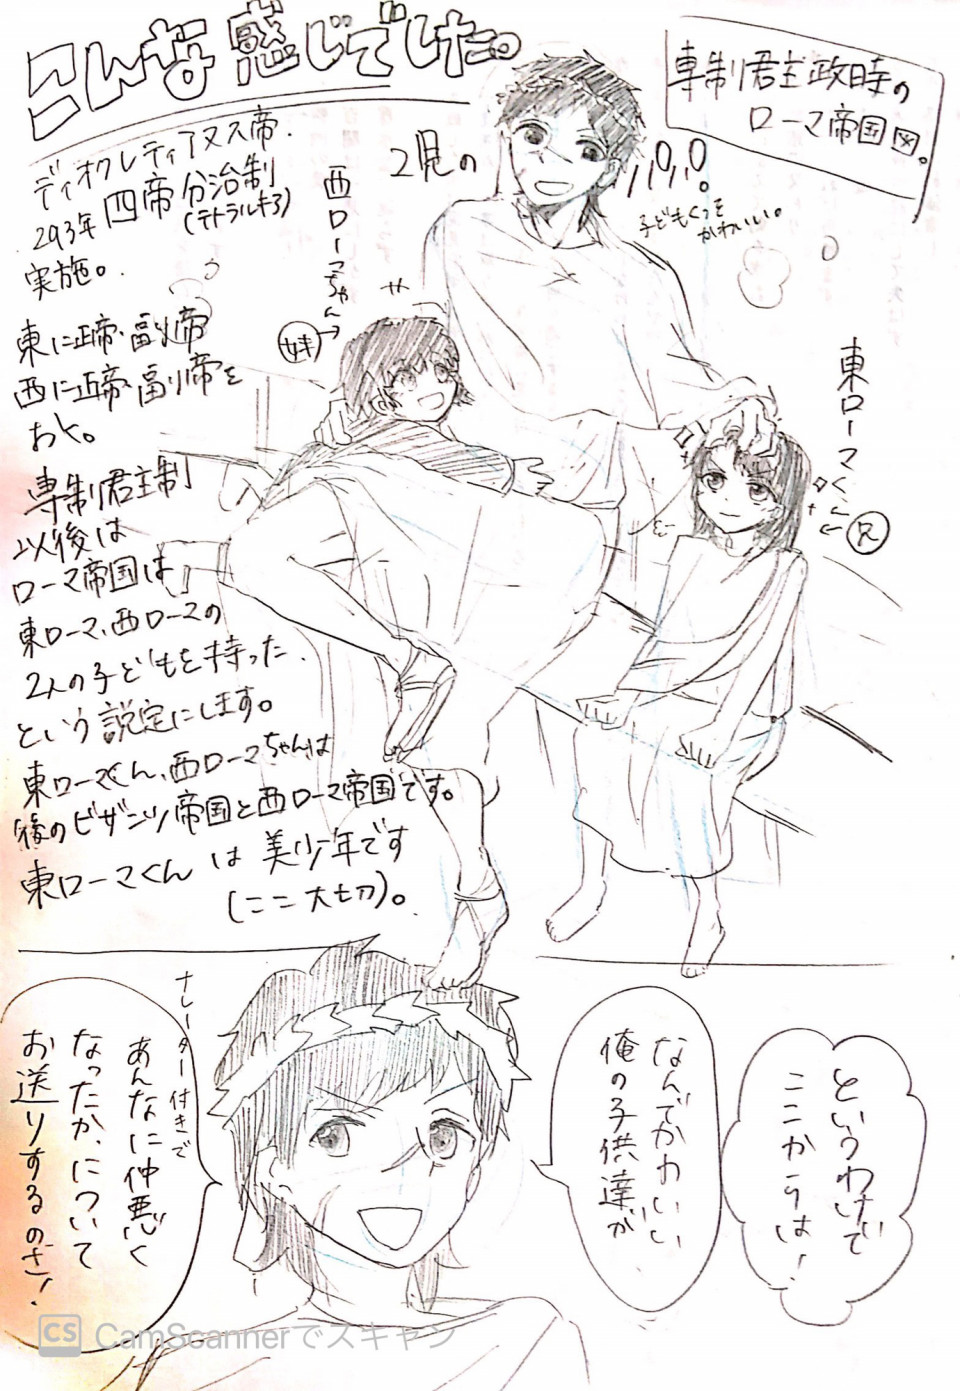 こんな感じでした。
専制君主政時の
ローマ帝国図。
ディオクレティアヌス帝.
293年 四帝分治制
(テトラルキア)
実施。
2児の
パパ。
子どもくっそ
かわいい。
西ローマちゃん
妹
東ローマくん
兄
東に正帝・副帝
西に正帝・副帝を
おく。
専制君主制
以後は
ローマ帝国は
東ローマ、西ローマの
2人の子どもを持った
という設定にします。
東ローマくん、西ローマちゃんは
後のビザンツ帝国と西ローマ帝国です。
東ローマくんは美少年です
(ここ大切)。
というわけで
ここからは!
なんでかわいい
俺の子供達が
ナレーター付きで
あんなに仲悪く
なったか、について
お送りするのさ!
CS CamScannerでスキャン